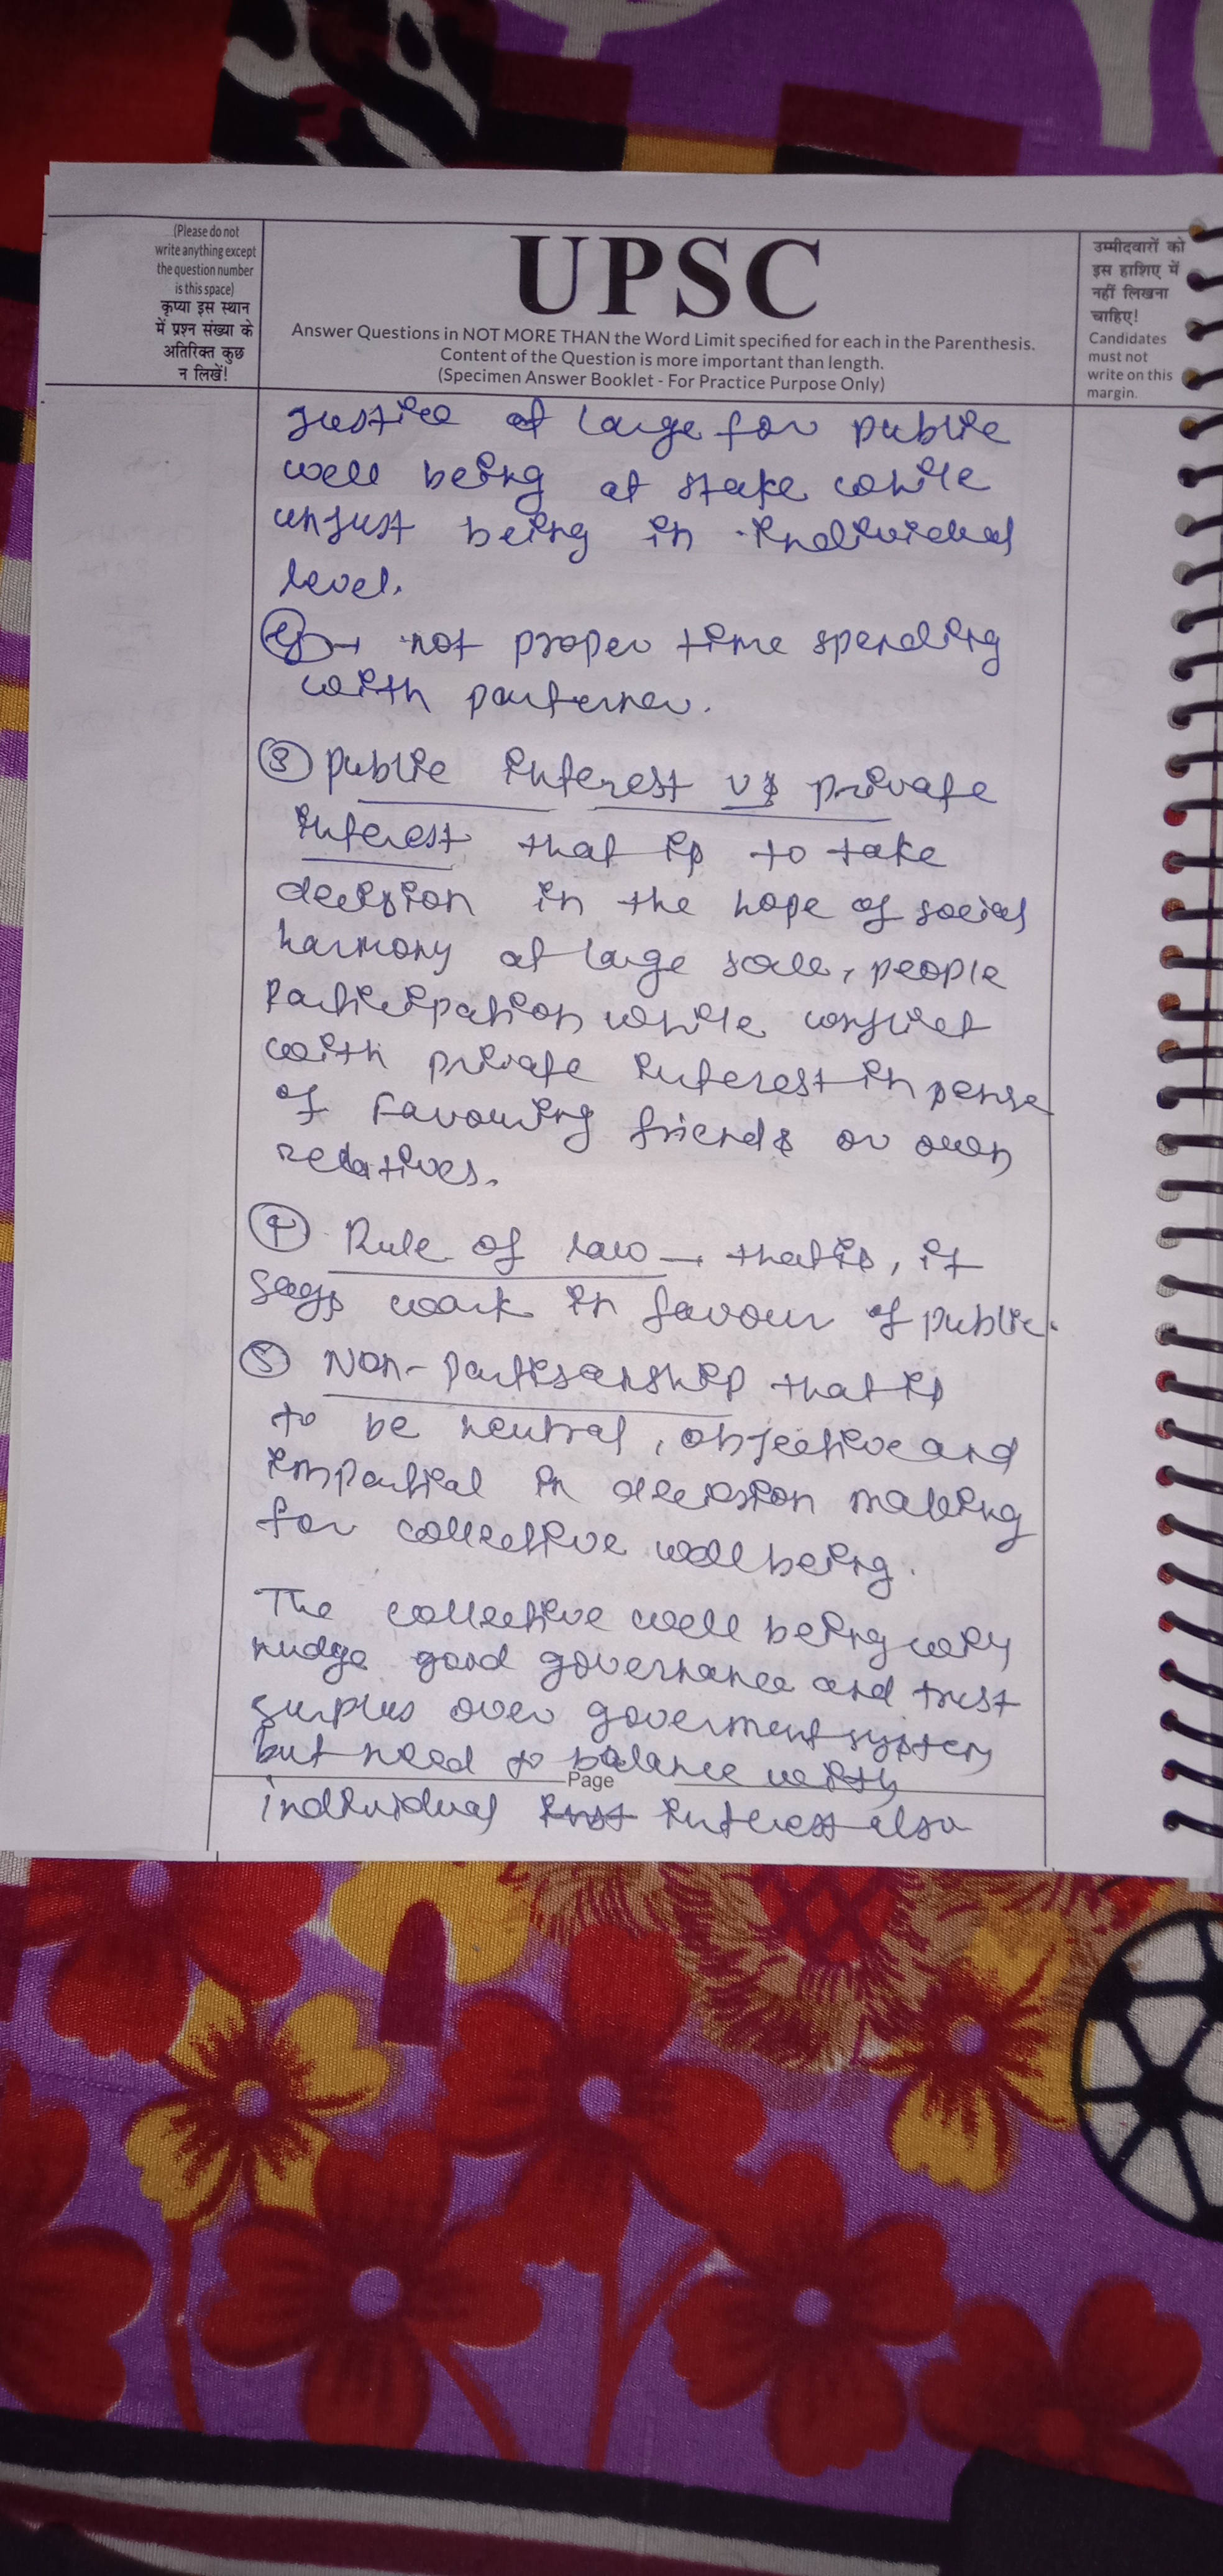 (Please do not
write anything except
the question number
is this space)
कृप्या इस स्थान
में प्रश्न संख्या के
अतिरिक्त कुछ
न लिखें!
UPSC
Answer Questions in NOT MORE THAN the Word Limit specified for each in the Parenthesis.
Content of the Question is more important than length.
(Specimen Answer Booklet - For Practice Purpose Only)
उम्मीदवारों को
इस हाशिए में
नहीं लिखना
चाहिए!
Candidates
must not
write on this
margin.
Justice at large for public
well being at stake while
unjust being in individual
level.
eg → not proper time spending
with parterner.
③ Public interest vs private
interest that is to take
decision in the hope of social
harmony at large scale, people
Participation while conflict
with private interest in sense
of Favouring friends or own
relatives.
④ Rule of law → that is, it
says work in favour of public.
⑤ Non-Partisanship that is
to be neutral, objective and
impartial in decision making
for collective wellbeing.
The collective well being will
nudge good governance and trust
surplus over goverment system
but need to balance with
Page
individual interest also